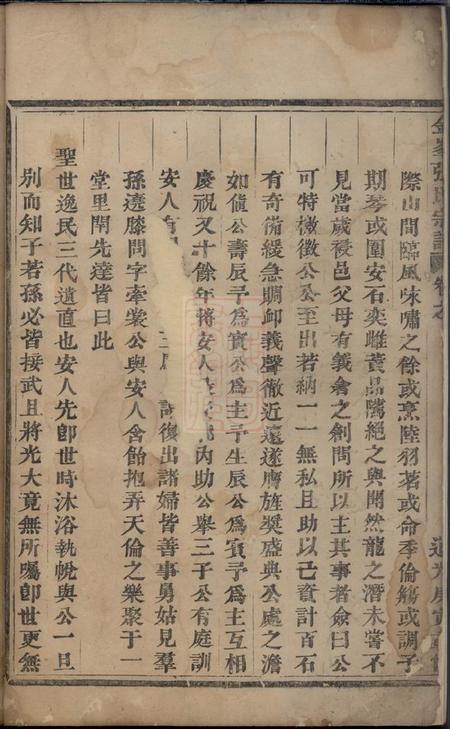 金峯張氏宗譜 卷之
道光庚寅重修
際山間臨風咏嘯之餘或烹陸羽茗或命季倫觴或調子
期琴或圍安石奕雌黃品隲絕之與閉然龍之潛未嘗不
見當歲祲邑父母有義倉之創問所以主其事者僉曰公
可特檄徵公公至出若納一一無私且助以己資計百石
有奇備緩急賙卹義聲徹近遠遂膺旌獎盛典公處之澹
如值公壽辰予為賓公為主予生辰公為賓予為主互相
慶祝又十餘年將安人 內助公舉三子公有庭訓
安人有 諸復出諸婦皆善事舅姑見羣
孫遶膝問字牽裳公與安人含飴抱弄天倫之樂聚于一
堂里閈先達皆曰此
聖世逸民三代遺直也安人先卽世時沐浴執帨與公一旦
別而知子若孫必皆接武且將光大竟無所囑卽世更無